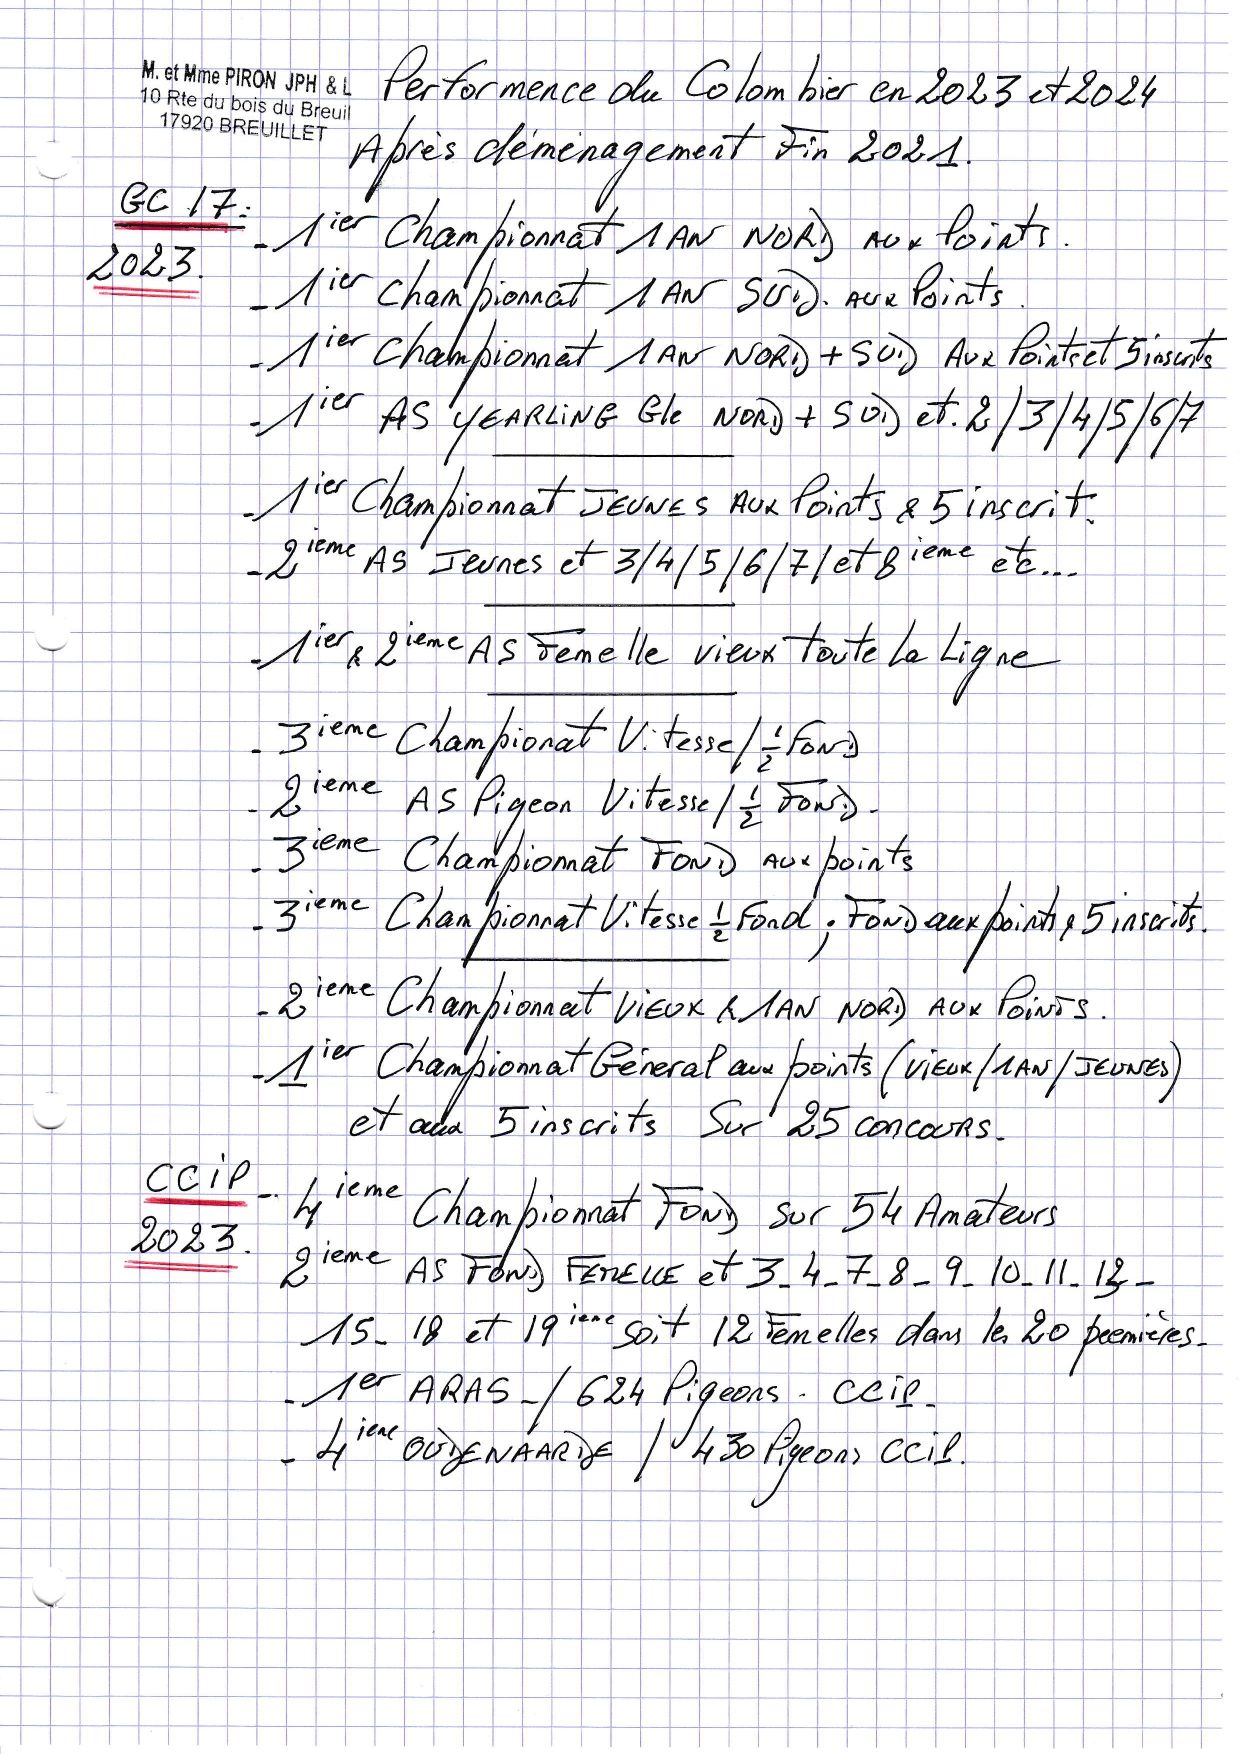 M. et Mme PIRON JPH & L
10 Rte du bois du Breuil
17920 BREUILLET
Performence du Colombier en 2023 et 2024
Après déménagement Fin 2021.
GC 17:
2023.
- 1ier Championnat 1 AN NORD AUX Points.
- 1ier Championnat 1 AN SUD. AUX Points.
- 1ier Championnat 1 AN NORD + SUD AUX Points et 5 inscrits
- 1ier AS YEARLING Gle NORD + SUD et. 2/3/4/5/6/7
- 1ier Championnat JEUNES AUX Points & 5 inscrit.
- 2ieme AS Jeunes et 3/4/5/6/7/ et 8ieme etc...
- 1ier & 2ieme AS Femelle vieux toute la Ligne
- 3ieme Championat Vitesse/ 1/2 FOND
- 2ieme AS Pigeon Vitesse/ 1/2 FOND.
- 3ieme Championnat FOND AUX points
- 3ieme Championnat Vitesse 1/2 Fond ; FOND aux points & 5 inscrits.
- 2ieme Championnat VIEUX & 1AN NORD AUX POINTS.
- 1ier Championnat Géneral aux points (VIEUX/1AN/JEUNES)
et aux 5 inscrits Sur 25 CONCOURS.
CCiP
2023.
- 4ieme Championnat FOND sur 54 Amateurs
2ieme AS FOND FEMELLE et 3_4_7_8_9_10_11_12_
15_ 18 et 19ieme soit 12 Femelles dans les 20 premières_
- 1er ARAS_/ 624 Pigeons. CCiP_
- 4ieme OUDENAARDE / 430 Pigeons CCiP.